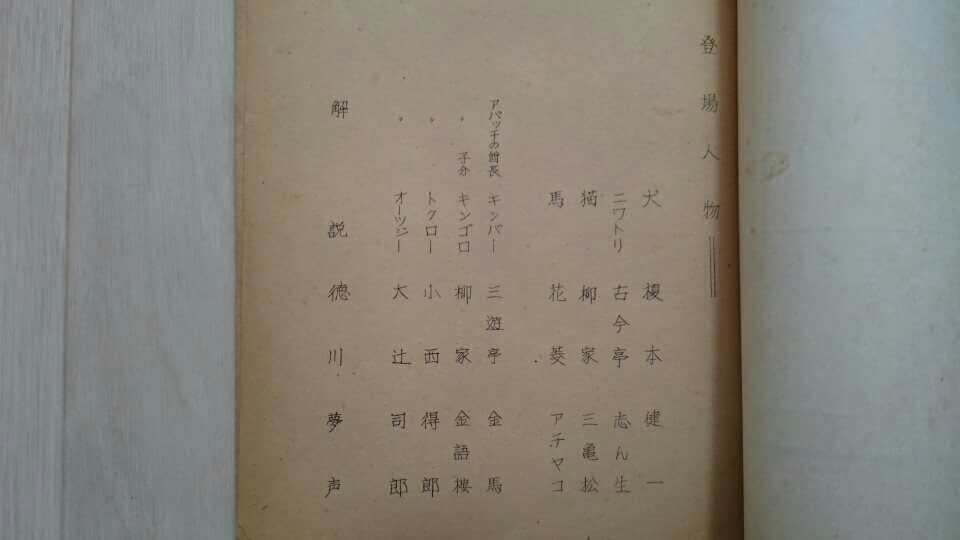 登場人物
犬 榎本健一
ニワトリ 古今亭志ん生
猫 柳家三亀松
馬 花菱アチャコ
アパッチの酋長 キンバー 三遊亭金馬
〃 子分 キンゴロ 柳家金語楼
〃 トクロー 小西得郎
〃 オーツジー 大辻司郎
解説 徳川夢声